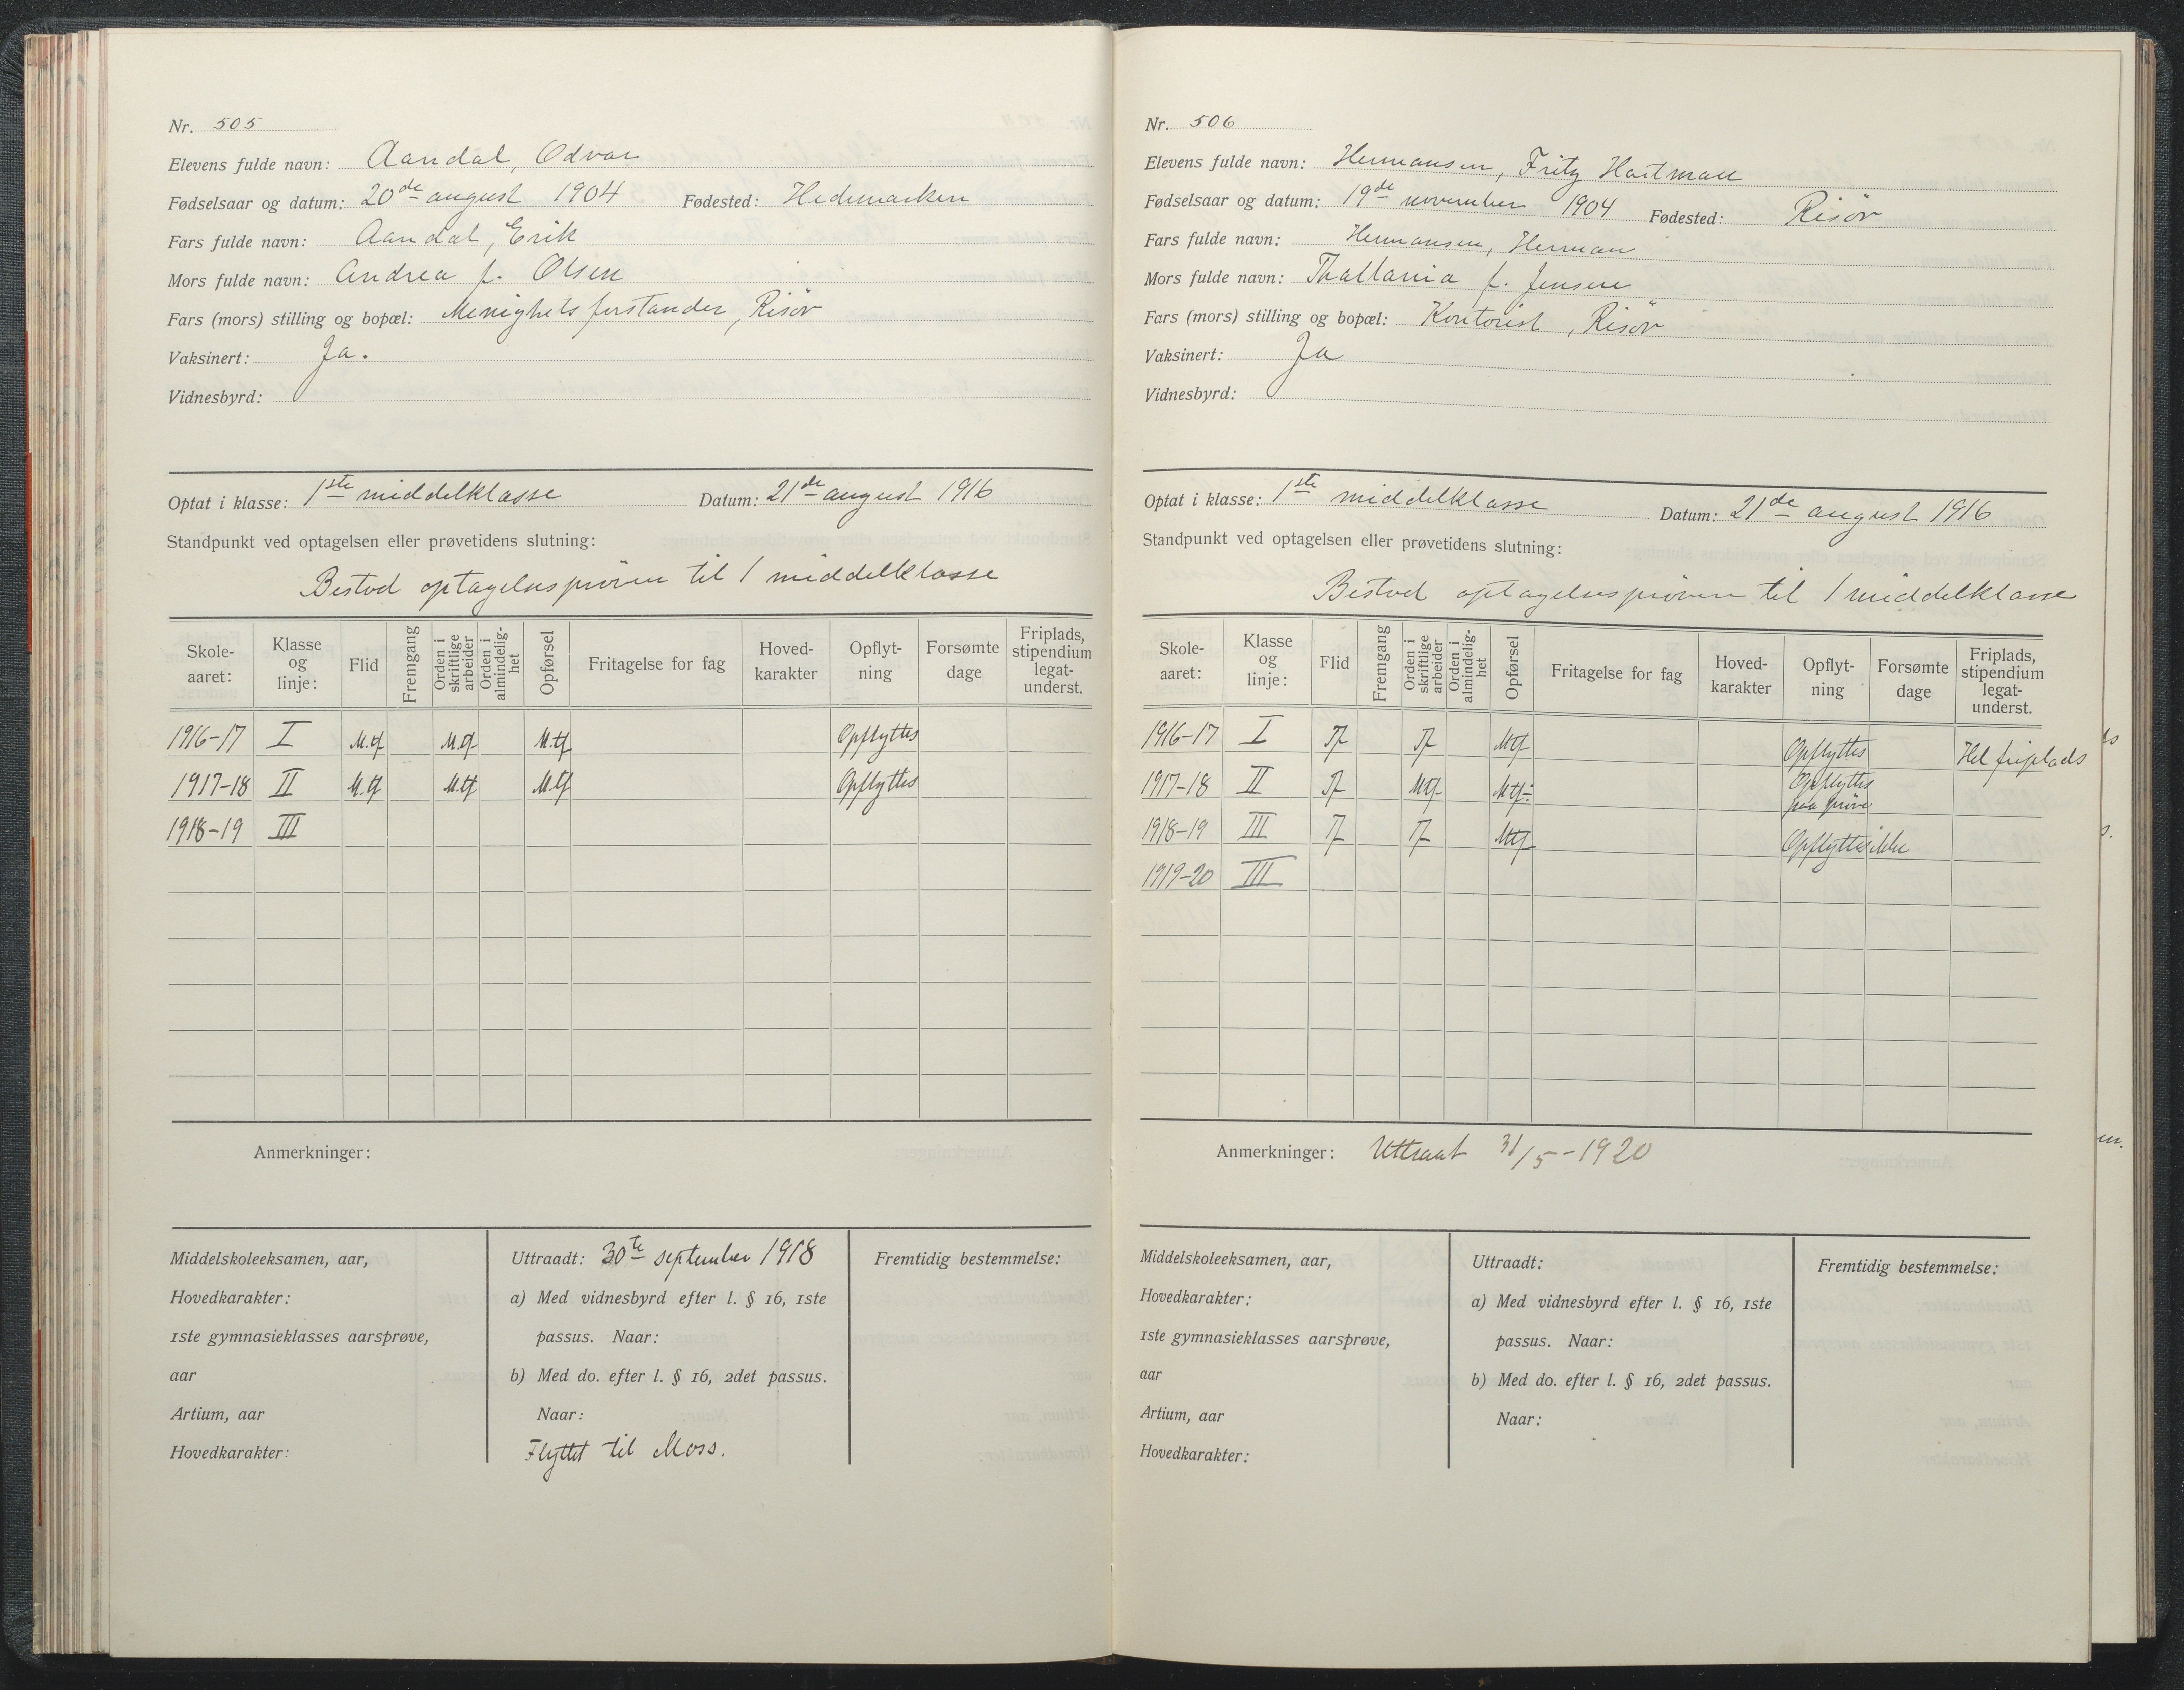 Nr. 505
Elevens fulde navn: Aandal, Odvar
Fødselsaar og datum: 20de august 1904 Fødested: Hedemarken
Fars fulde navn: Aandal, Erik
Mors fulde navn: Andrea f. Olsen
Fars (mors) stilling og bopæl: Menighetsforstander, Risör
Vaksinert: Ja.
Vidnesbyrd:
Optat i klasse: 1ste middelklasse Datum: 21de august 1916
Standpunkt ved optagelsen eller prøvetidens slutning:
Bestod optagelsespröven til 1 middelklasse
Skole-aaret: Klasse og linje: Flid Fremgang Orden i skriftlige arbeider Orden i almindelig-het Opførsel Fritagelse for fag Hoved-karakter Opflyt-ning Forsømte dage Friplads, stipendium legat-underst.
1916-17 I M.tf M.tf M.tf Opflyttes
1917-18 II M.tf M.tf M.tf Opflyttes
1918-19 III
Anmerkninger:
Middelskoleeksamen, aar,
Hovedkarakter:
1ste gymnasieklasses aarsprøve,
aar
Artium, aar
Hovedkarakter:
Uttraadt: 30te september 1918
a) Med vidnesbyrd efter l. § 16, 1ste
passus. Naar:
b) Med do. efter l. § 16, 2det passus.
Naar:
Flyttet til Moss.
Fremtidig bestemmelse:
Nr. 506
Elevens fulde navn: Hermansen, Fritz Hartman
Fødselsaar og datum: 19de november 1904 Fødested: Risör
Fars fulde navn: Hermansen, Herman
Mors fulde navn: Thallania f. Jensen
Fars (mors) stilling og bopæl: Kontorist, Risör
Vaksinert: Ja
Vidnesbyrd:
Optat i klasse: 1ste middelklasse Datum: 21de august 1916
Standpunkt ved optagelsen eller prøvetidens slutning:
Bestod optagelsespröven til 1 middelklasse
Skole-aaret: Klasse og linje: Flid Fremgang Orden i skriftlige arbeider Orden i almindelig-het Opførsel Fritagelse for fag Hoved-karakter Opflyt-ning Forsømte dage Friplads, stipendium legat-underst.
1916-17 I Tf Tf Mtf Opflyttes Hel friplads
1917-18 II Tf Mtf Mtf÷ Opflyttes
paa pröve
1918-19 III Tf Tf Mtf Opflyttes ikke
1919-20 III
Anmerkninger: Uttraat 31/5-1920
Middelskoleeksamen, aar,
Hovedkarakter:
1ste gymnasieklasses aarsprøve,
aar
Artium, aar
Hovedkarakter:
Uttraadt:
a) Med vidnesbyrd efter l. § 16, 1ste
passus. Naar:
b) Med do. efter l. § 16, 2det passus.
Naar:
Fremtidig bestemmelse: